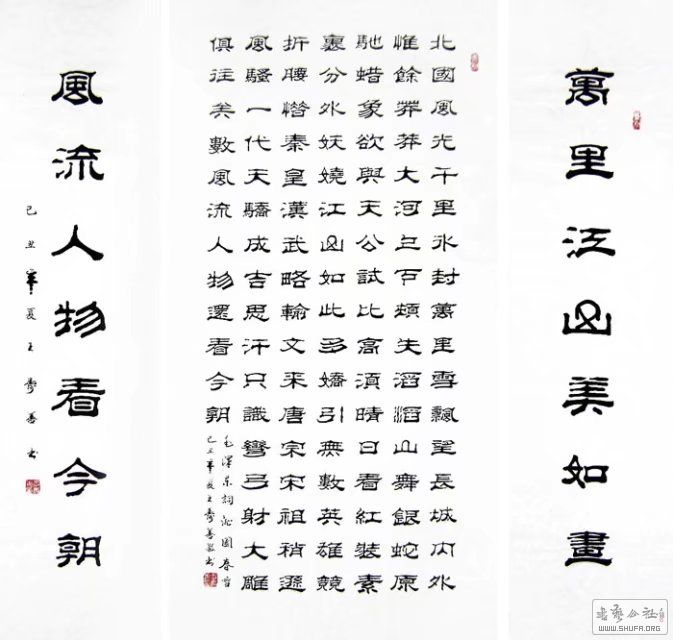 萬里江山美如畫
北國風光千里氷封萬里雪飄望長城内外
惟餘莽莽大河上下頓失滔滔山舞銀蛇原
馳蜡象欲與天公試比高須晴日看紅裝素
裹分外妖嬈江山如此多嬌引無數英雄競
折腰惜秦皇漢武略輸文采唐宗宋祖稍遜
風騷一代天驕成吉思汗只識彎弓射大雕
俱往矣數風流人物還看今朝
毛澤東詞沁園春雪
己丑年夏王壽善書
風流人物看今朝
己丑年夏王壽善書
WWW.SHUFA.ORG